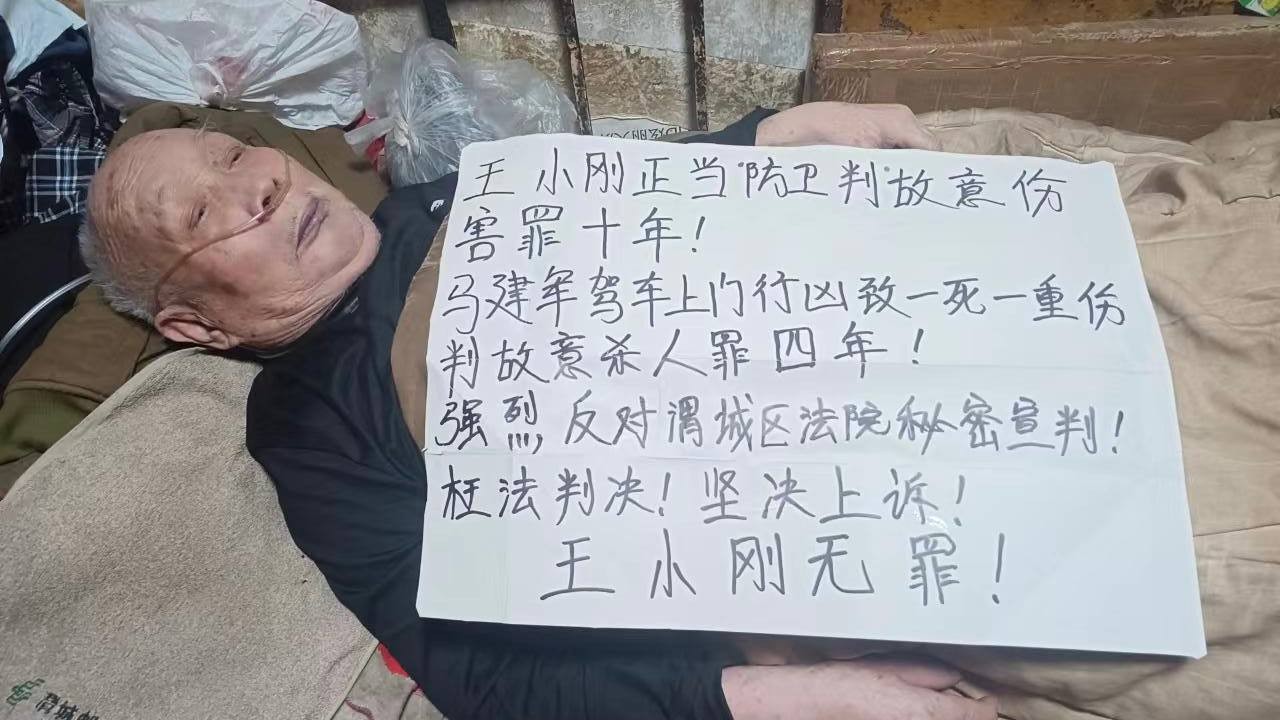 王小刚正当"防卫判"故意伤
害罪十年！
马建军驾车上门行凶致一死一重伤
判故意杀人罪四年！
强烈反对渭城区法院秘密宣判！
枉法判决！坚决上诉！
王小刚无罪！
商城